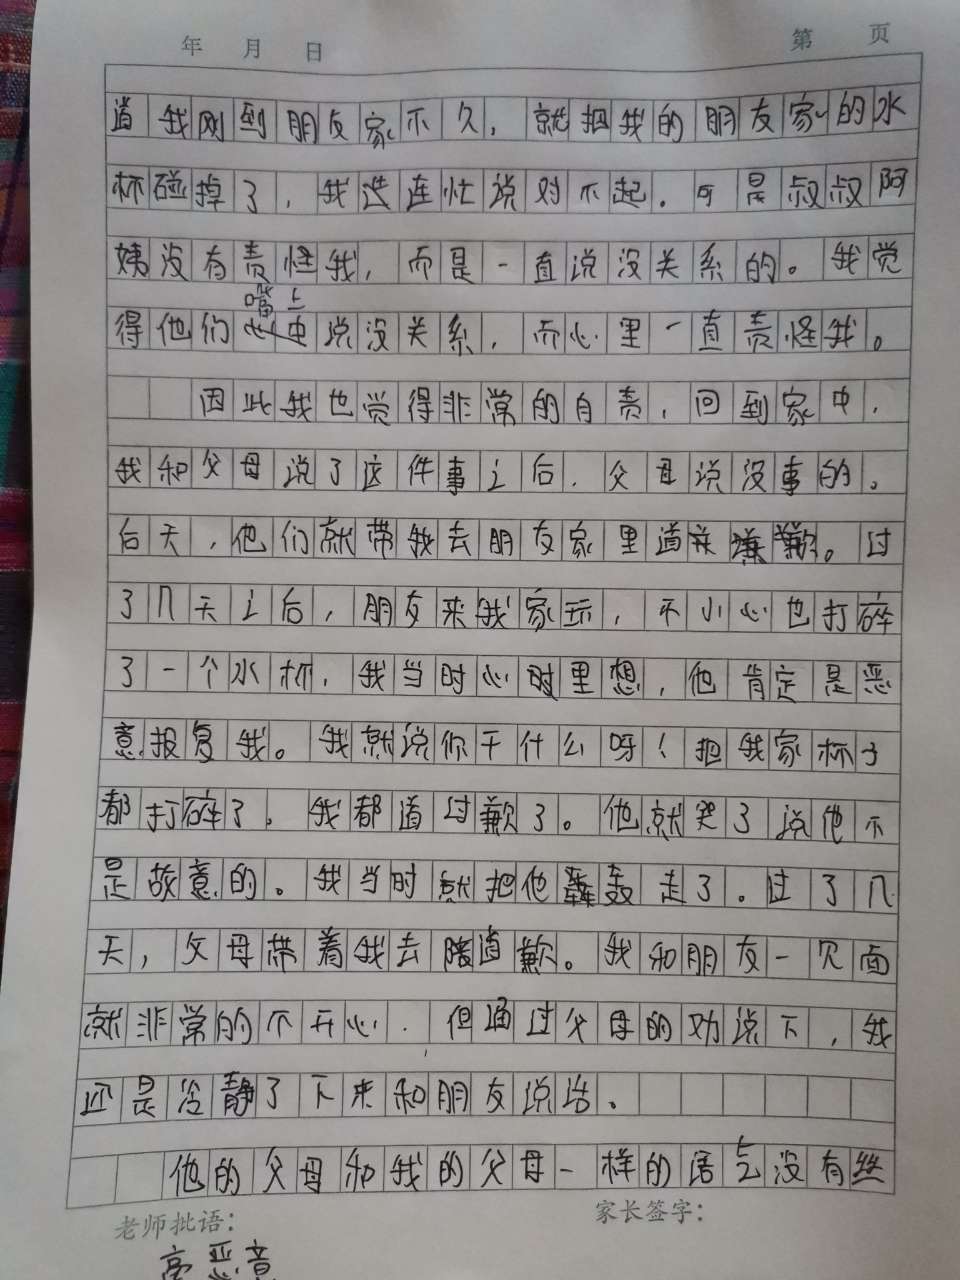 年 月 日 第 页
道我刚到朋友家不久，就把我的朋友家的水
杯碰掉了，我连忙说对不起。可是叔叔阿
姨没有责怪我，而是一直说没关系的。我觉
嘴上
得他们说没关系，而心里一直责怪我。
因此我也觉得非常的自责，回到家中，
我和父母说了这件事之后，父母说没事的。
后天，他们就带我去朋友家里道歉。过
了几天之后，朋友来我家玩，不小心也打碎
了一个水杯，我当时心时里想，他肯定是恶
意报复我。我就说你干什么呀！把我家杯子
都打碎了，我都道过歉了。他就哭了说他不
是故意的。我当时就把他轰走了。过了几
天，父母带着我去道歉。我和朋友一见面
就非常的不开心．但通过父母的劝说下，我
还是冷静了下来和朋友说话。
他的父母和我的父母一样的语气没有丝
老师批语： 家长签字：
恶意